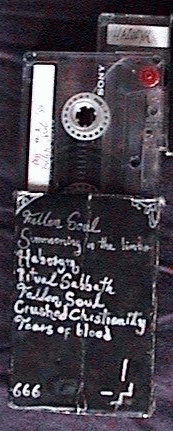 SONY
Fallen Soul
Summoning in the limbo
Haborym
Ritual Sabbath
Fallen Soul
Crushed Christianity
Tears of blood
666